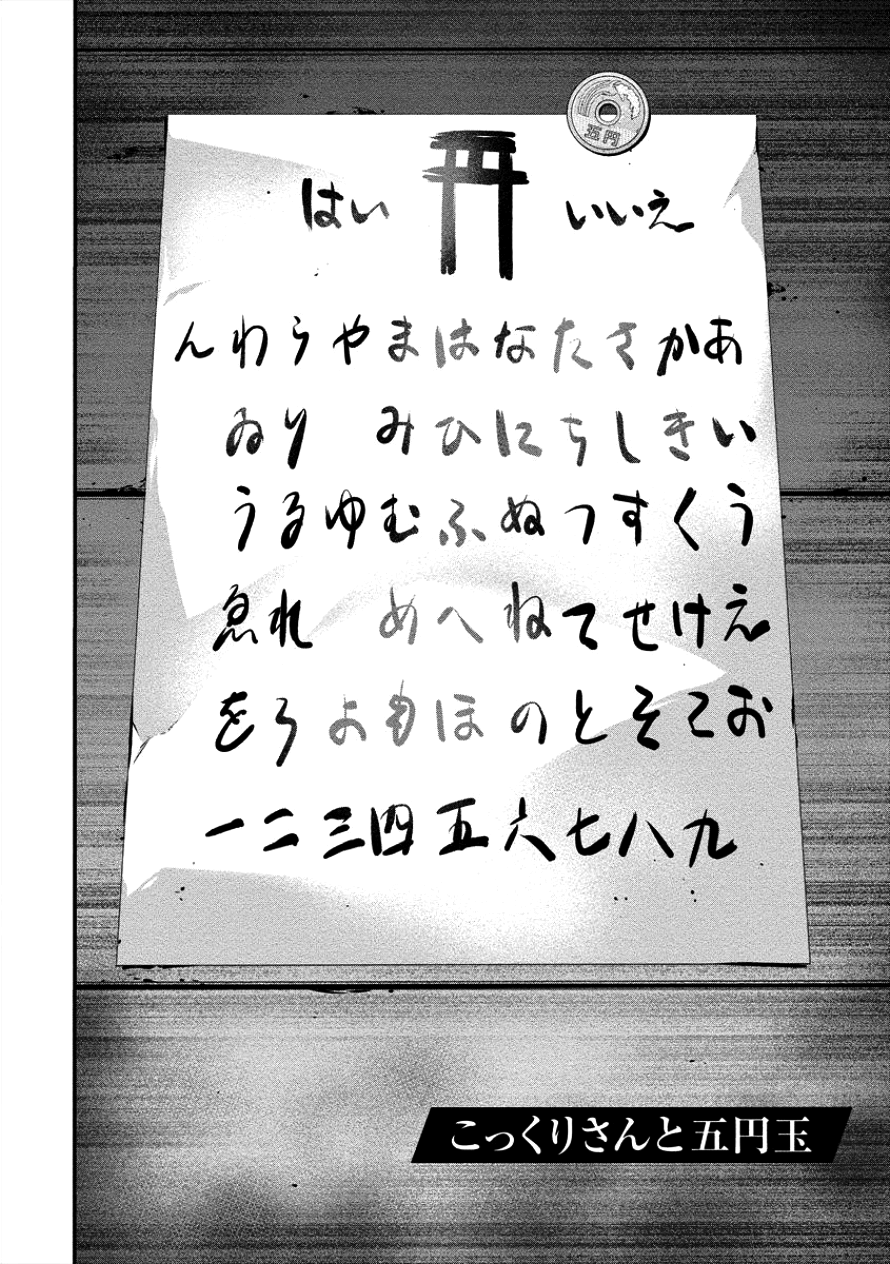 五円
はい いいえ
んわらやまはなたさかあ
ゐり みひにちしきい
うるゆむふぬつすくう
ゑれ めへねてせけえ
をろよもほのとそこお
一二三四五六七八九
こっくりさんと五円玉